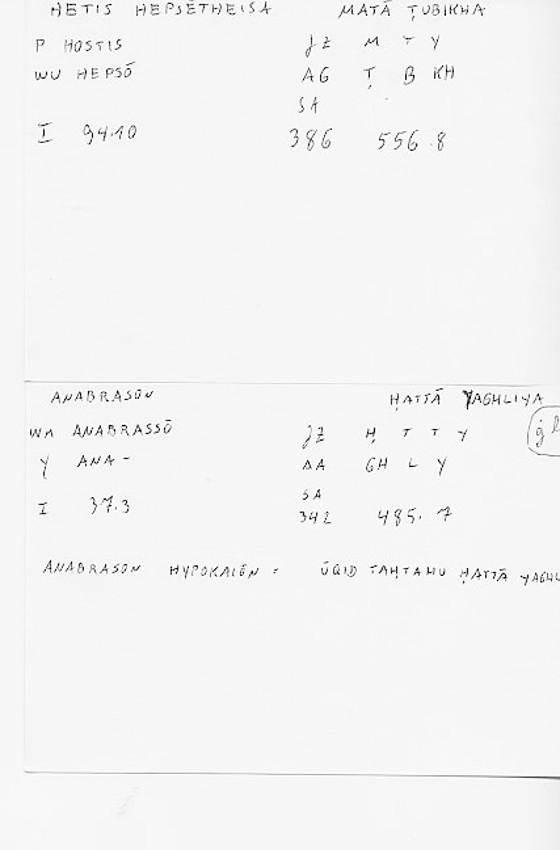 HĒTIS HEPSĒTHEISA MATĀ ṬUBIKHA
P HOSTIS JZ M T Y
WU HEPSŌ AG Ṭ B KH
SA
I 94.10 386 556.8
ANABRASON ḤATTĀ YAGHLIYA
WM ANABRASSŌ JZ Ḥ T T Y
Y ANA- AA GH L Y
SA
I 37.3 342 485.7
ANABRASON HYPOKAIŌN = ŪQID TAḤTAHU ḤATTĀ